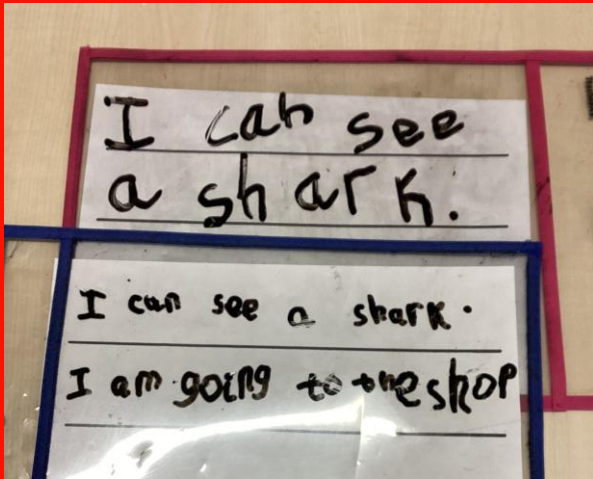 I can see
a shark.
I can see a shark.
I am going to the shop